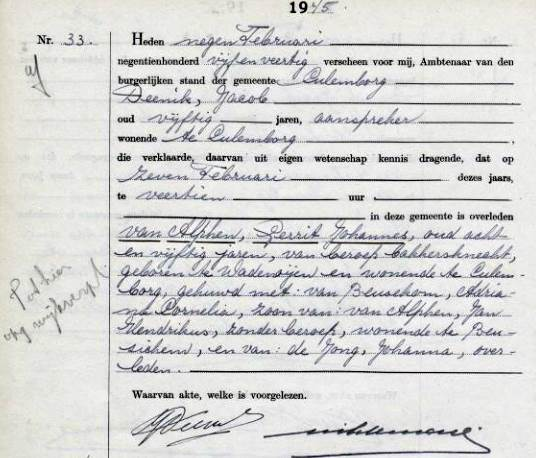 1945.
Nr. 33. Heden negen Februari
negentienhonderd vijf en veertig verscheen voor mij, Ambtenaar van den
burgerlijken stand der gemeente Culemborg
Deenik, Jacob
oud vijftig jaren, aanspreker
wonende te Culemborg,
die verklaarde, daarvan uit eigen wetenschap kennis dragende, dat op
zeven Februari dezes jaars,
te veertien uur
in deze gemeente is overleden
van Alphen, Gerrit Johannes, oud acht
en vijftig jaren, van beroep bakkersknecht,
geboren te Wadenoijen en wonende te Culem-
borg, gehuwd met: van Beusekom, Adria-
na Cornelia, zoon van: van Alphen, Jan
Hendrikus, zonder beroep, wonende te Beu-
sichem, en van: de Jong, Johanna, over-
leden.
Waarvan akte, welke is voorgelezen.